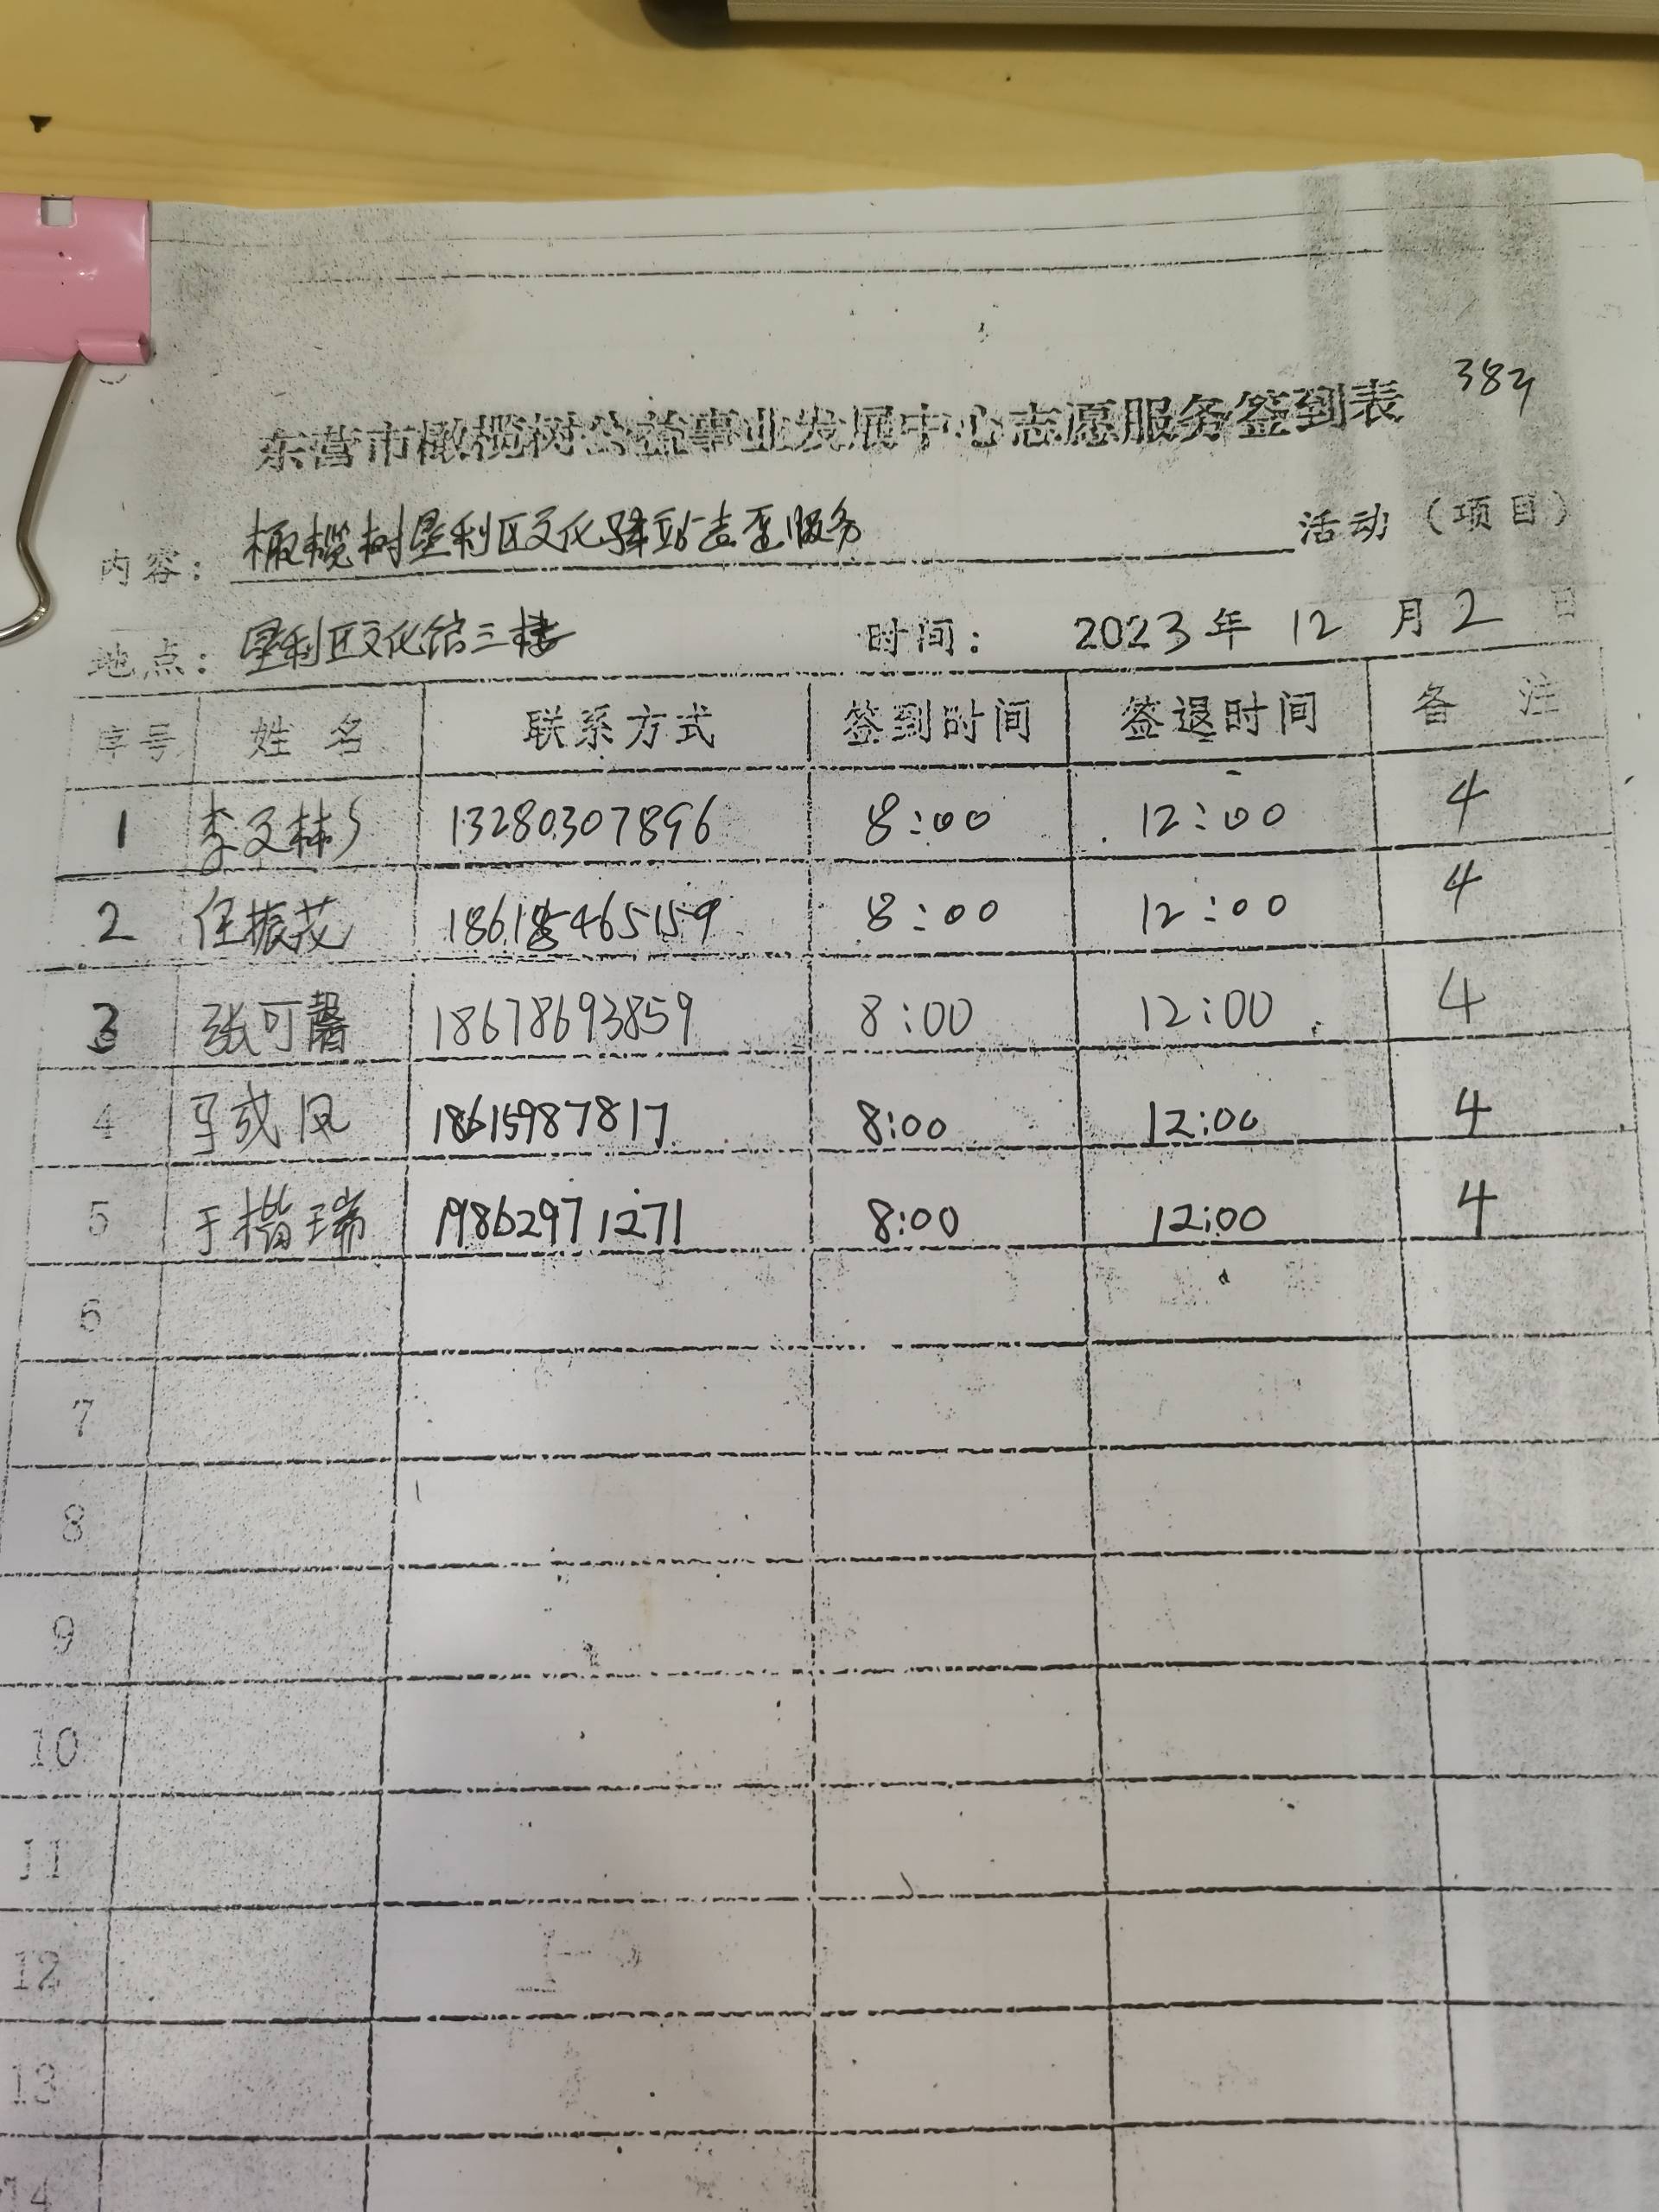 384
东营市橄榄树公益事业发展中心志愿服务签到表
内容: 橄榄树垦利区文化驿站志愿服务 活动(项目)
地点: 垦利区文化馆三楼 时间: 2023年 12 月 2 日
序号 姓名 联系方式 签到时间 签退时间 备注
1 李文彬 13280307896 8:00 12:00 4
2 任振花 8:00 12:00 4
3 张可馨 18678693859 8:00 12:00 4
4 18615987817 8:00 12:00 4
5 于楷瑞 19862971271 8:00 12:00 4
6
7
8
9
10
11
12
13
14